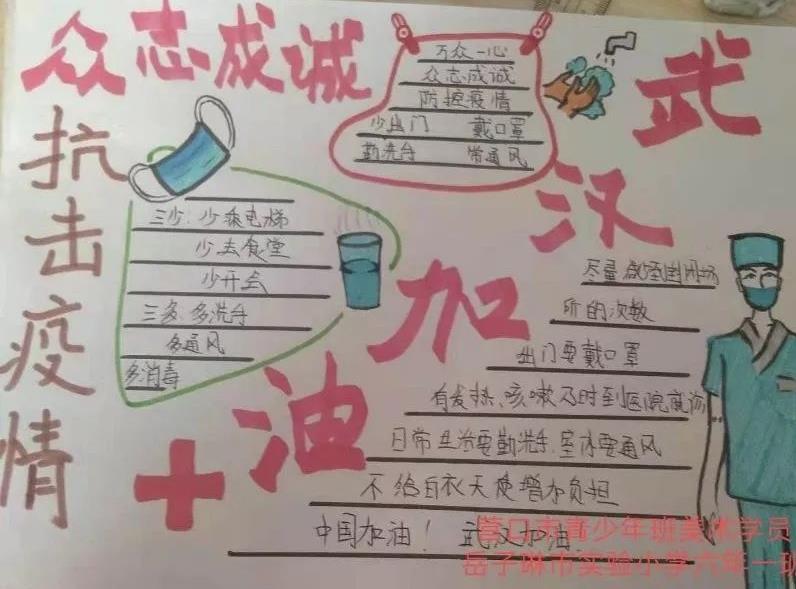 众志成诚
抗击疫情
武汉加油
万众一心
众志成诚
防控疫情
少出门 戴口罩
勤洗手 常通风
三少:少乘电梯
少去食堂
少开会
三多:多洗手
多通风
多消毒
尽量 到封闭场
所的次数
出门要戴口罩
有发热、咳嗽及时到医院就诊
日常生活要勤洗手,室内要通风
不给白衣天使增加负担
中国加油! 武汉加油
营口市青少年班美术学员
岳子琳市实验小学六年一班